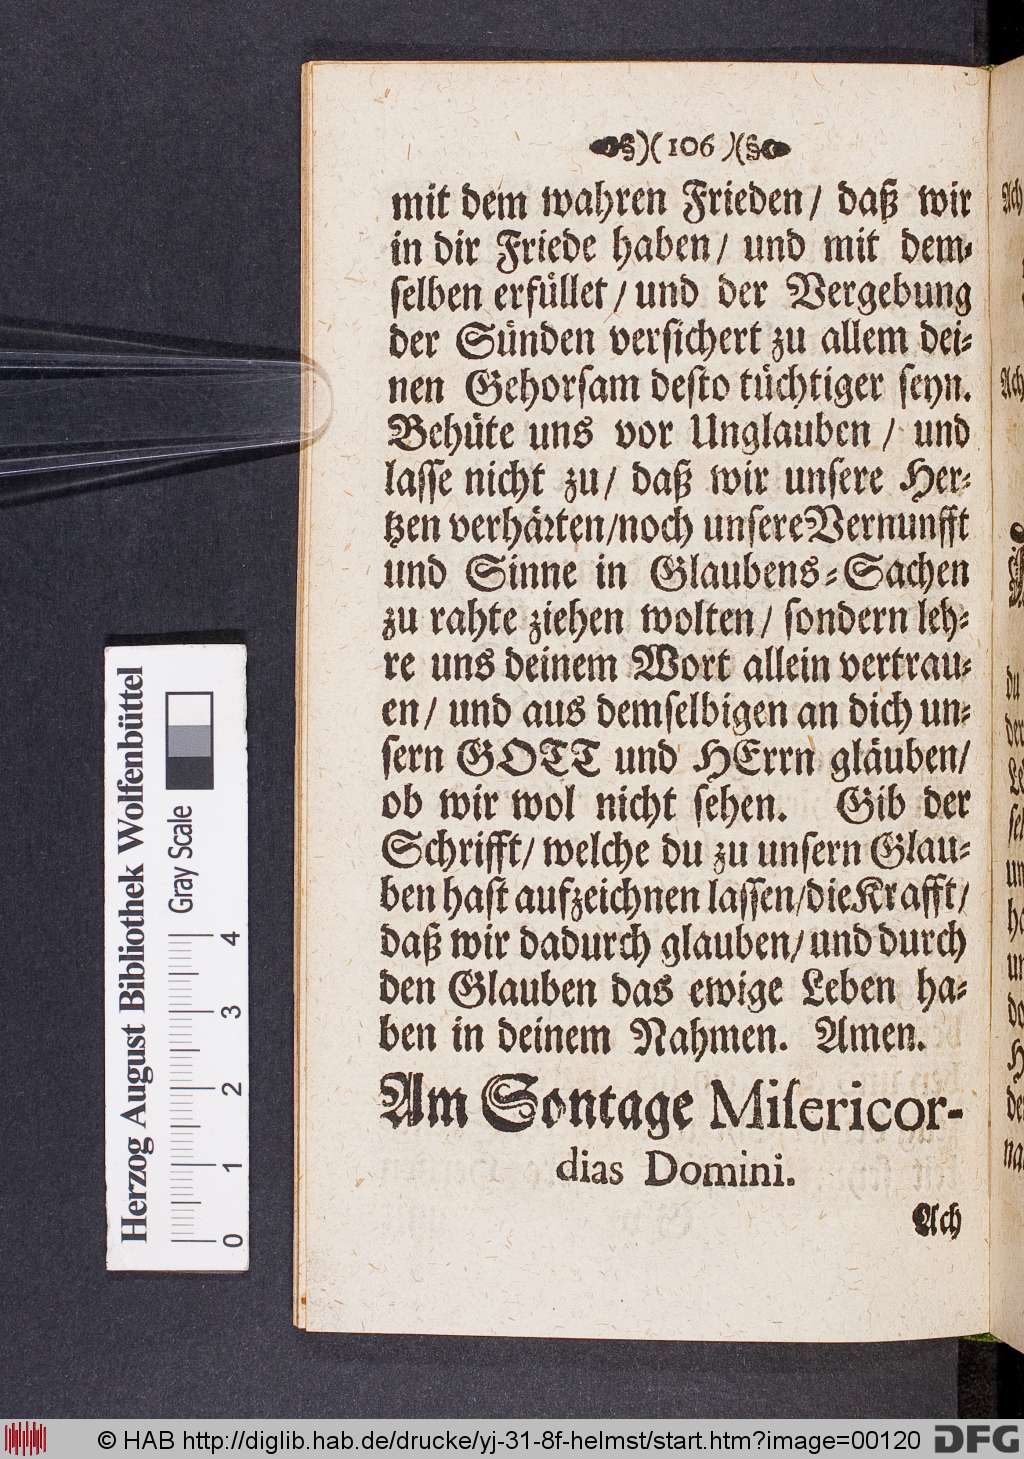 §)( 106 )(§
mit dem wahren Frieden/ daß wir
in dir Friede haben/ und mit dem-
selben erfüllet/ und der Vergebung
der Sünden versichert zu allem dei-
nen Gehorsam desto tüchtiger seyn.
Behüte uns vor Unglauben/ und
lasse nicht zu/ daß wir unsere Her-
tzen verhärten/noch unsere Vernunfft
und Sinne in Glaubens-Sachen
zu rahte ziehen wolten/ sondern leh-
re uns deinem Wort allein vertrau-
en/ und aus demselbigen an dich un-
sern GOTT und HErrn gläuben/
ob wir wol nicht sehen. Gib der
Schrifft/ welche du zu unsern Glau-
ben hast aufzeichnen lassen/die Krafft/
daß wir dadurch glauben/ und durch
den Glauben das ewige Leben ha-
ben in deinem Nahmen. Amen.
Am Sontage Misericor-
dias Domini.
Ach
Herzog August Bibliothek Wolfenbüttel
Gray Scale
0 1 2 3 4
© HAB http://diglib.hab.de/drucke/yj-31-8f-helmst/start.htm?image=00120
DFG